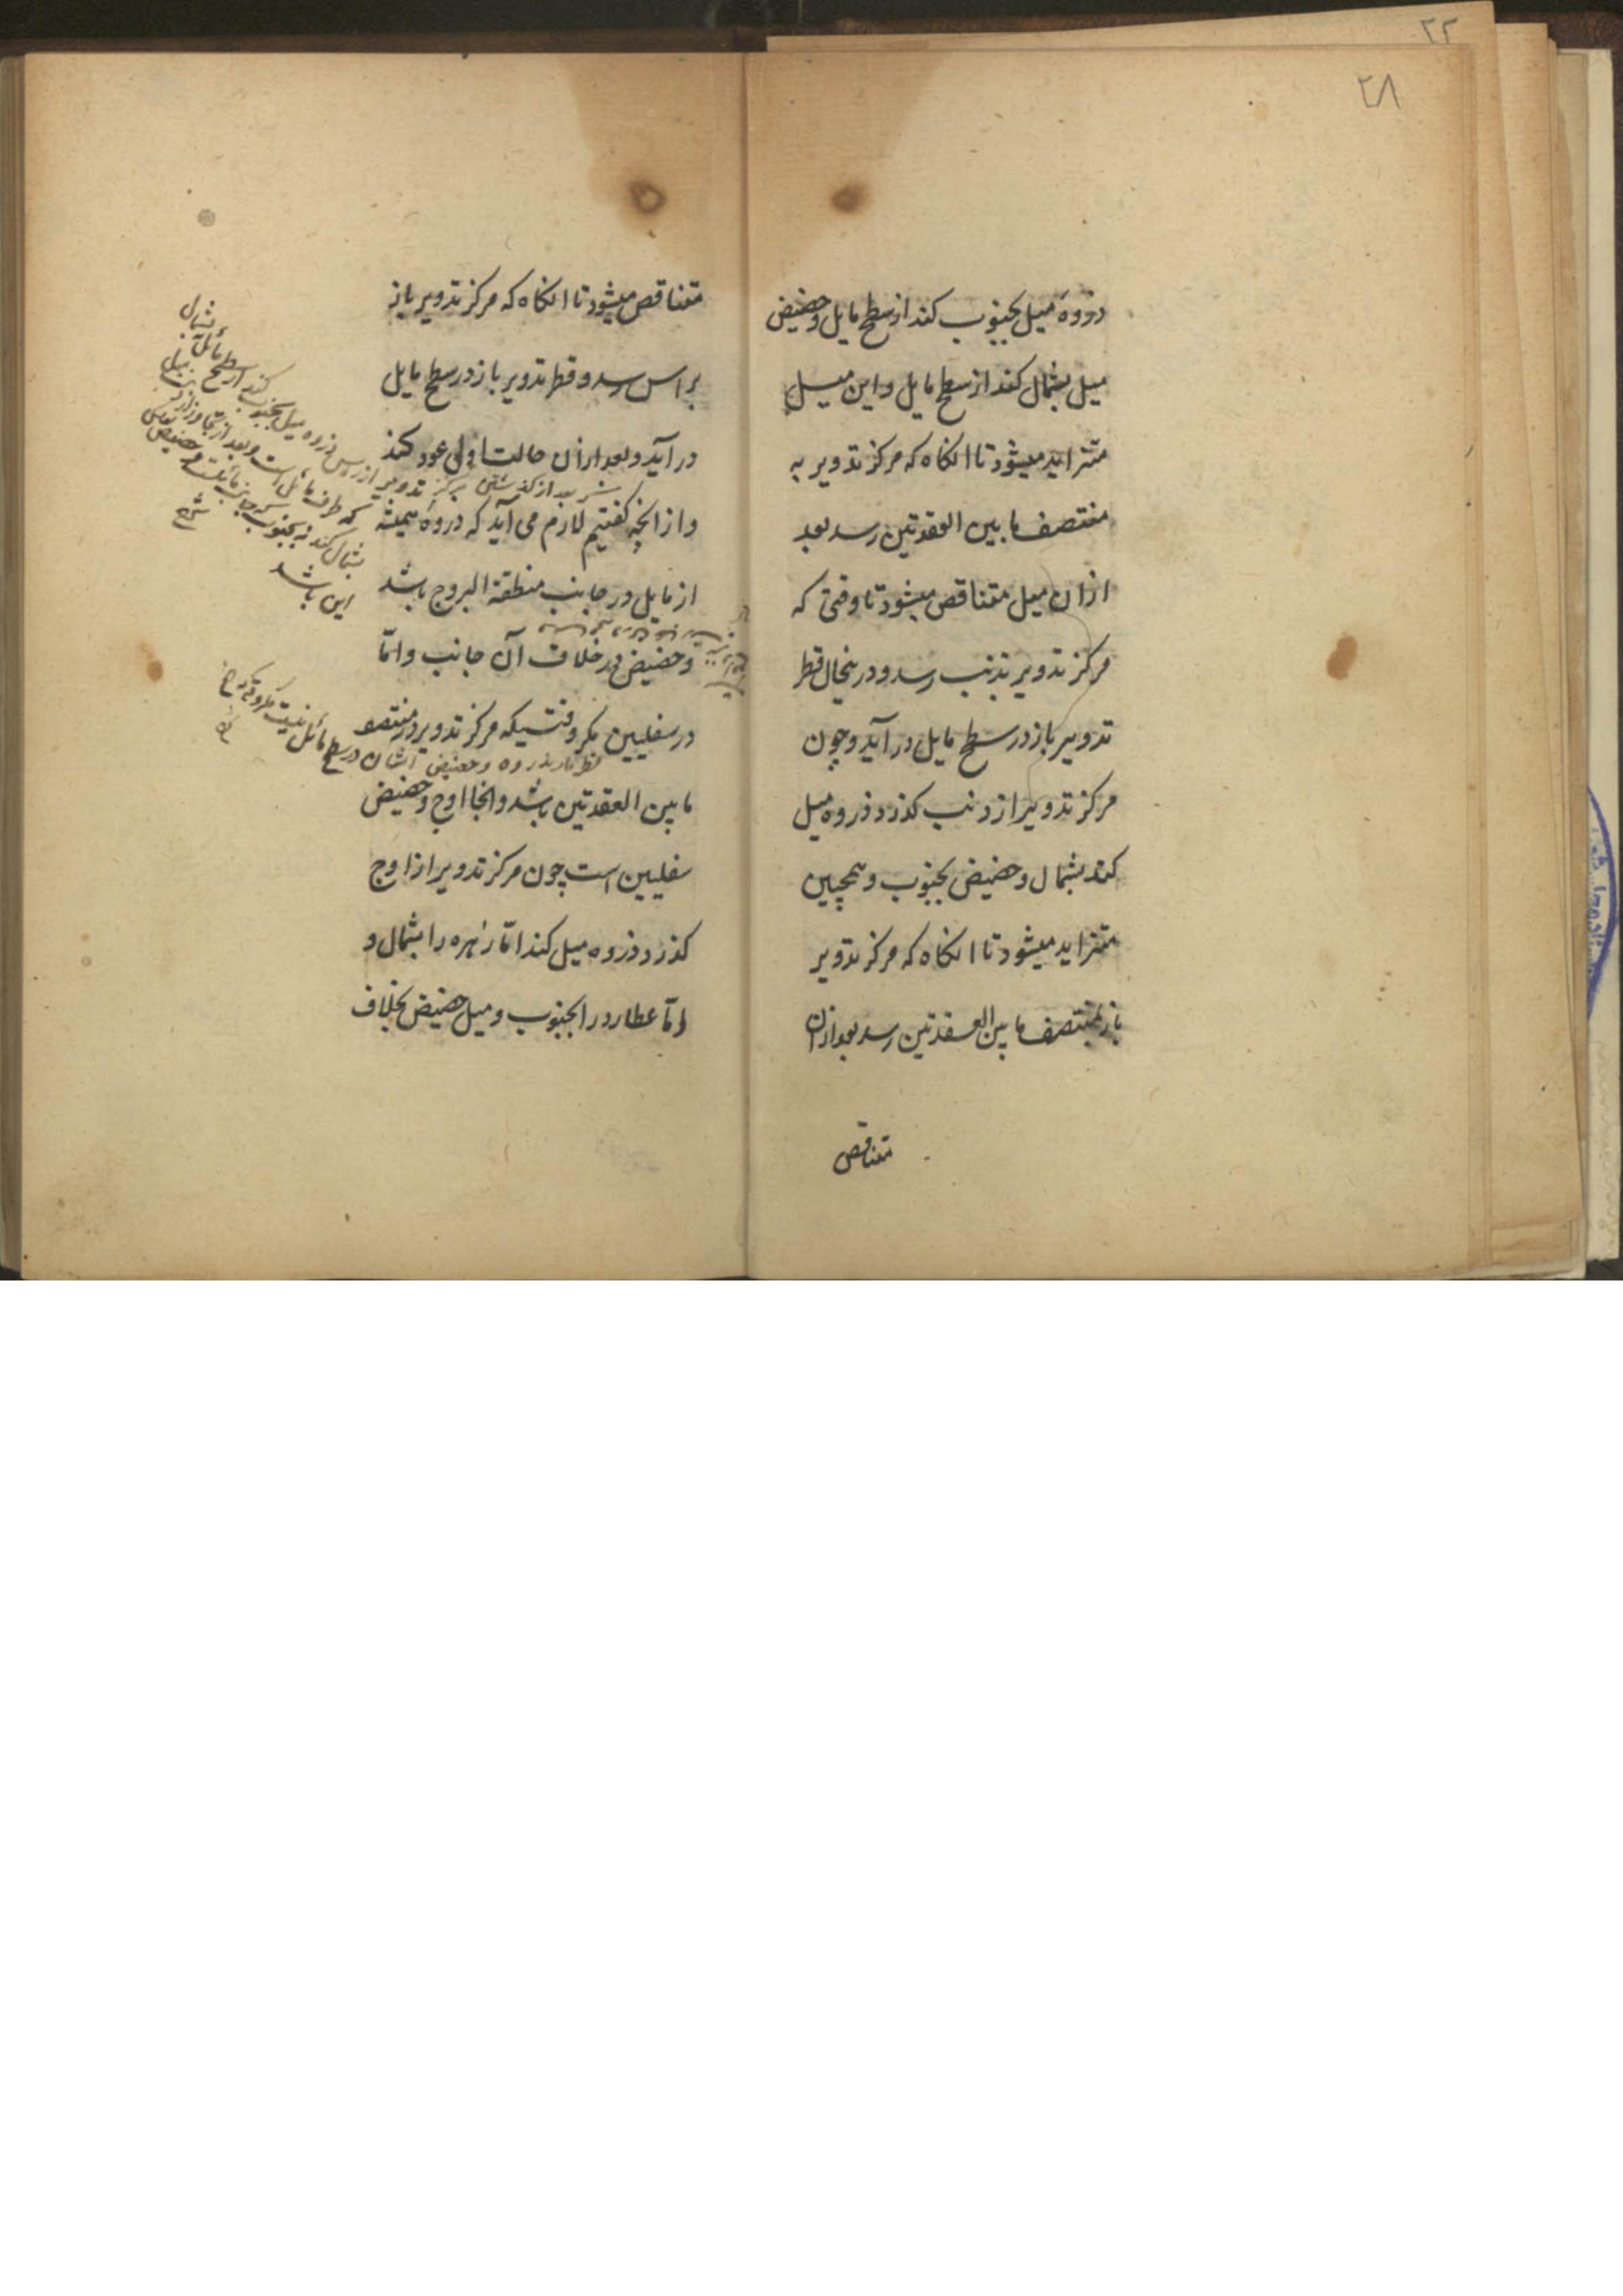 ۲۲
۲۸
ذروه میل بجنوب کند از سطح مایل و حضیض
میل بشمال کند از سطح مایل و این میل
متزاید میشود تا انکاه که مرکز تدویر به
منتصف ما بین العقدتین رسد بعد
ازان میل متناقص میشود تا وقتی که
مرکز تدویر بذنب رسد و درینحال قطر
تدویر باز در سطح مایل در آید و چون
مرکز تدویر از ذنب کذرد ذروه میل
کند بشمال و حضیض بجنوب و همچنین
متزاید میشود تا انکاه که مرکز تدویر
باز بمنتصف ما بین العقدتین رسد بعد ازان
متناقص
متناقص میشود تا انکاه که مرکز تدویر باز
براس رسد و قطر تدویر باز در سطح مایل
در آید و بعد ازان حالت اولی عود کند
و از انچه کفتیم لازم می آید که ذروه همیشه
از مایل در جانب منطقة البروج باشد
و حضیض در خلاف آن جانب و امّا
در سفلیین مکر وقتیکه مرکز تدویر در منتصف
ما بین العقدتین باشد و انجا اوج و حضیض
سفلیین است چون مرکز تدویر از اوج
کذرد ذروه میل کند امّا زهره را بشمال و
امّا عطارد را بجنوب و میل حضیض بخلاف
بعد از کذشتن مرکز تدویر از راس ذروه میل بجنوب کند از سطح مائل
که طرف مائل است و بعد از تجاوز از ذنب
بشمال کند نه بجنوب که جانب مائلست و حضیض بعکس
این باشد
شرح
قطر مار بذروه و حضیض ایشان در سطح مائل نیست مکر وقتیکه